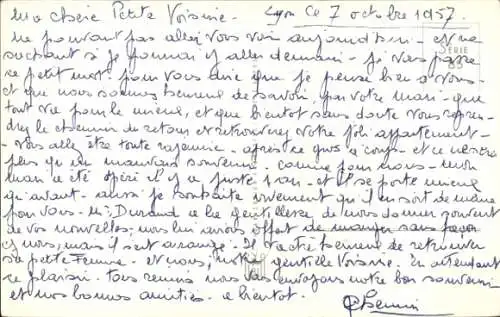 Ma chère Petite Voisine. Lyon ce 7 octobre 1957.
SÉRIE
ne pouvant pas aller vous voir aujourd'hui - et ne
sachant si je pourrai y aller demain - je vous passe
ce petit mot pour vous dire que je pense bien à vous -
et que nous sommes heureux de savoir, par votre mari - que
tout va pour le mieux, et que bientôt sans doute vous repren-
drez le chemin du retour et retrouverez votre joli appartement -
Vous allez être toute rajeunie - après ce gros à coup - et ce ne sera
plus qu'un mauvais souvenir. comme pour nous - mon
mari a été opéré il y a juste 1 an - et il se porte mieux
qu'avant - aussi je souhaite vivement qu'il en soit de même
pour vous. Mr Durand a la gentillesse de nous donner souvent
de vos nouvelles; nous lui avions offert de manger sans façon
chez nous, mais il s'est arrangé. Il va être heureux de retrouver
sa petite Femme. et nous, notre gentille Voisine. En attendant
ce plaisir. tous réunis nous vous envoyons notre bon souvenir
et nos bonnes amitiés. à bientôt.